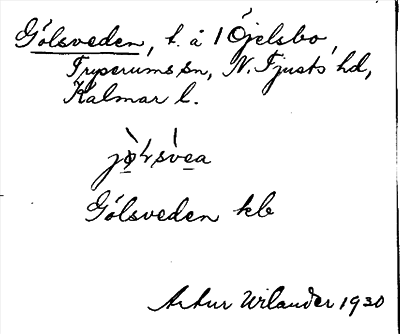 Gölsveden, t. å 1 Öjelsbo,
Tryserums sn, N. Tjusts hd,
Kalmar l.
Gölsveden kb
Artur Urlander 1930